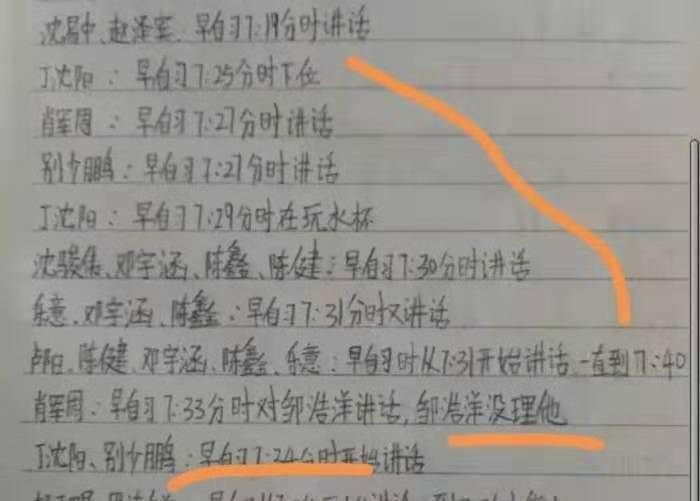 沈易中、赵泽宝：早自习7:19分时讲话
丁沈阳：早自习7:25分时下位
肖军周：早自习7:27分时讲话
别少鹏：早自习7:27分时讲话
丁沈阳：早自习7:29分时在玩水杯
沈骏伟、邓宇涵、陈鑫、陈健：早自习7:30分时讲话
乐意、邓宇涵、陈鑫：早自习7:31分时又讲话
卢阳、陈健、邓宇涵、陈鑫、乐意：早自习时从7:31开始讲话，一直到7:40
肖军周：早自习7:33分时对邹浩洋讲话，邹浩洋没理他
丁沈阳、别少鹏：早自习7:24分时开始讲话